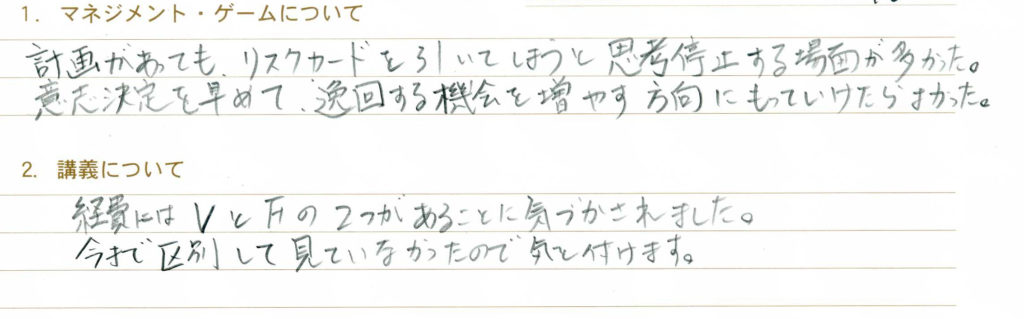 1. マネジメント・ゲームについて
計画があっても、リスクカードを引いてしまうと思考停止する場面が多かった。
意志決定を早めて、逸回する機会を増やす方向にもっていけたらよかった。
2. 講義について
経費にはVとFの2つがあることに気づかされました。
今まで区別して見ていなかったので気を付けます。